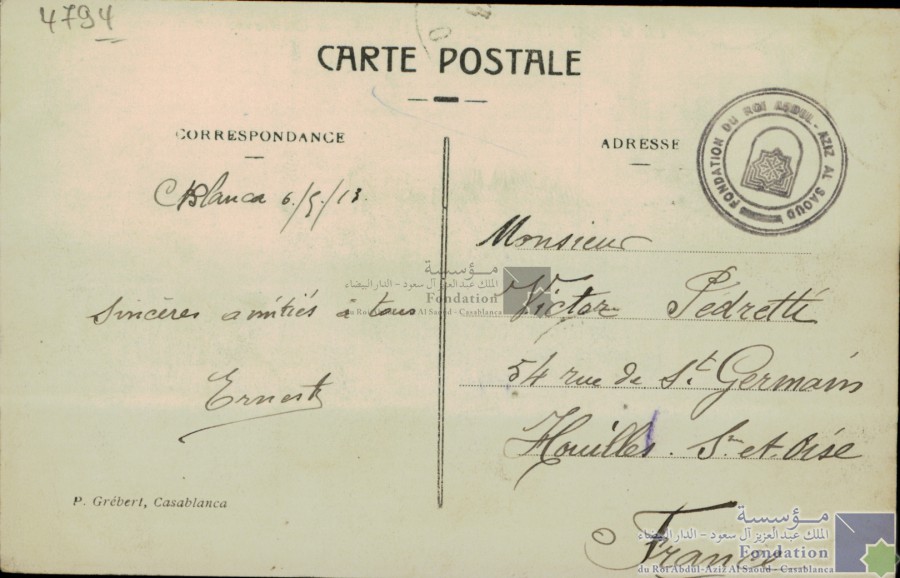 4794
CARTE POSTALE
CORRESPONDANCE
ADRESSE
FONDATION DU ROI ABDUL-AZIZ AL SAOUD
CBlanca 6/5/13
Monsieur
مؤسسة
الملك عبد العزيز آل سعود - الدار البيضاء
Fondation
du Roi Abdul-Aziz Al Saoud - Casablanca
Victor Pedretti
Sincères amitiés à tous
54 rue de St. Germain
Ernest
Houilles. S. et. Oise
P. Grébert, Casablanca
France
مؤسسة
الملك عبد العزيز آل سعود - الدار البيضاء
Fondation
du Roi Abdul-Aziz Al Saoud - Casablanca